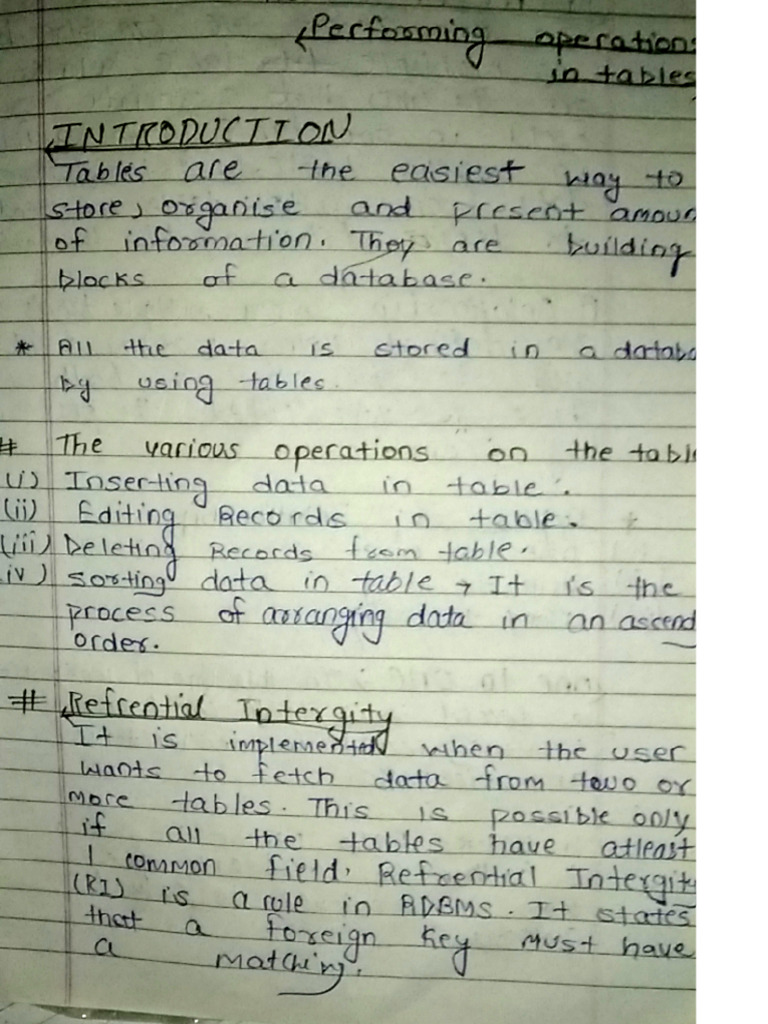 Performing operation
in tables
INTRODUCTION
Tables are the easiest way to
store, organise and present amoun
of information. They are building
blocks of a database.
* All the data is stored in a databa
by using tables.
# The various operations on the tabl
(i) Inserting data in table.
(ii) Editing Records in table.
(iii) Deleting Records from table.
iv) sorting data in table → It is the
process of arranging data in an ascend
order.
# Refrential Intergity
It is implemented when the user
wants to fetch data from two or
more tables. This is possible only
if all the tables have atleast
1 common field. Refrential Intergit
(RI) is a rule in RDBMS. It states
that a foreign key must have
a matching.